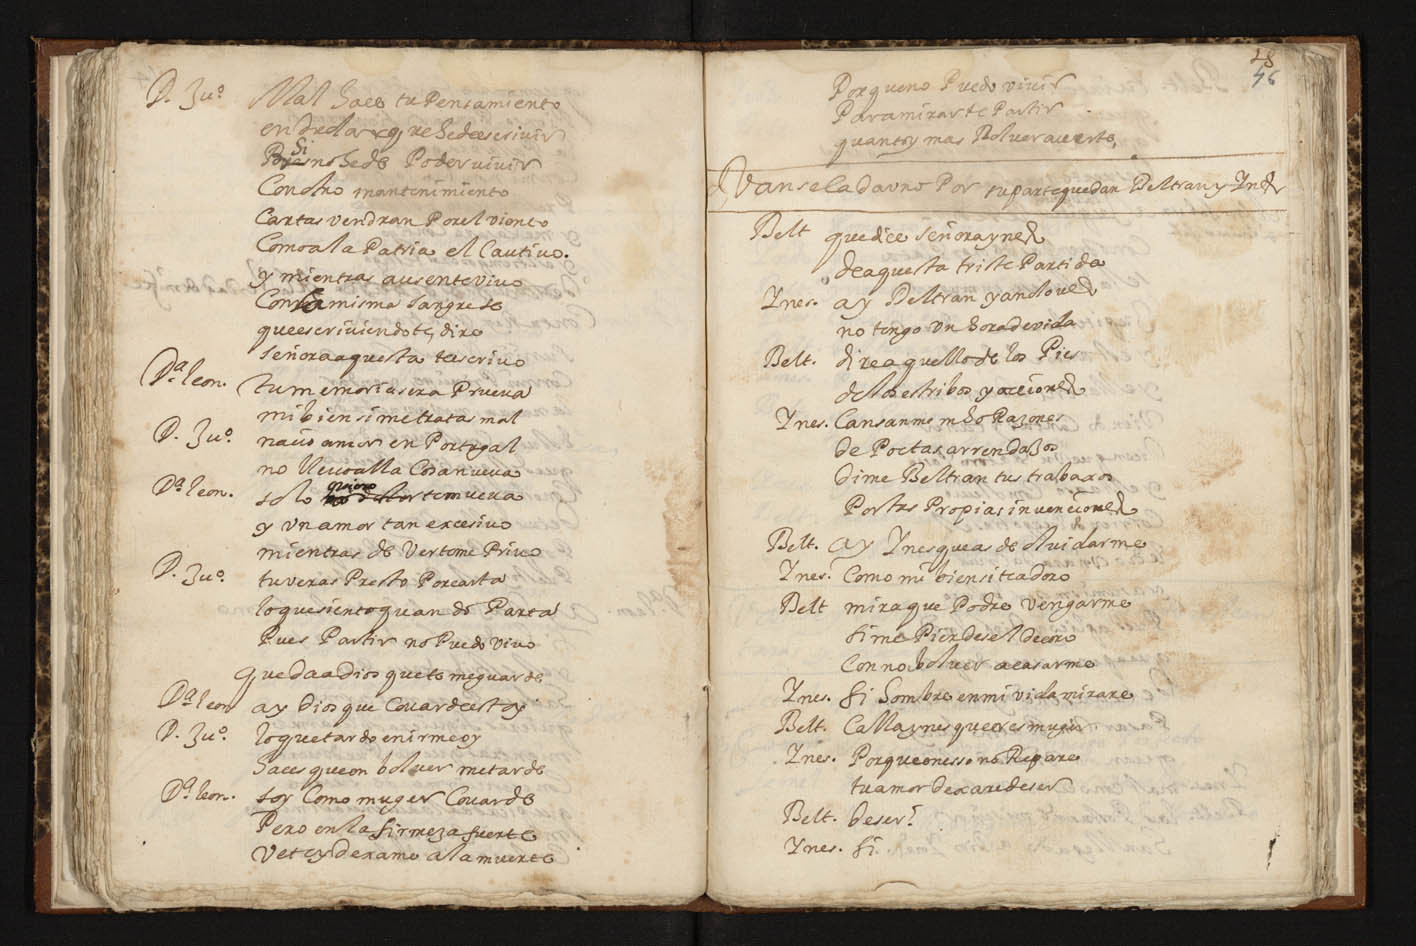 D. Juº. Mal Saes tu Pensamiento
en dudar q̃ rehede escrivir
Si
Pues no hede Poder vivir
Con otro mantenimiento
Cartas vendran Por el viento
Como a la Patria el Cautivo.
y mientras ausente vivo
Con la misma sangre de
que escriviendote, dire
Señora aquesta te escrivo
Dª. leon. tu memoria sera Prueva
mi bien si me tratas mal
D. Juº. nacio amor en Portugal
no llevo alla Cosa nueva
quiero
Dª. leon. solo te mueva
y Un amor tan excesivo
mientras de Verte me Privo
D. Juº. tu veras Presto Por carta
lo que siento quando Parta
Pues Partir no Puedo vivo
Queda a dios que te me guarde
Dª leon ay Dios que Covarde estoy
D. Juº. lo que tardo en irme oy
Saces que en bolver me tarde
Dª. leon. soy Como muger Covarde
Pero en la firmeza fuerte
Vete y dexame a la muerte
28
46
Porque no Puedo vivir
Para mirarte Partir
quanto y mas Bolver a verte,
Vanse Cada vno Por su parte quedan Beltran y Ines
Belt que dice Señora ynes
de aquesta triste Partida
Ynes. ay Beltran ya no lo ves
no tengo Un hora de vida
Belt. dire aquello de los Pies
del estribo y arçiones
Ynes. Cansanme mcho Razones
de Poetas arrendajos
dime Beltran tus trabaxos
Por tus Propias invenciones
Belt. ay Ynes que as de olvidarme
Ynes. Como mi bien si te adoro
Belt mira que Podre vengarme
si me Pierdes el decoro
Con no bolver a casarme
Ynes. si hombre en mi vida mirare
Belt. Calla ynes que eres muger
Ynes. Porque en esso no Repare
tu amor dexare de ser
Belt. de ser?
Ynes. si.